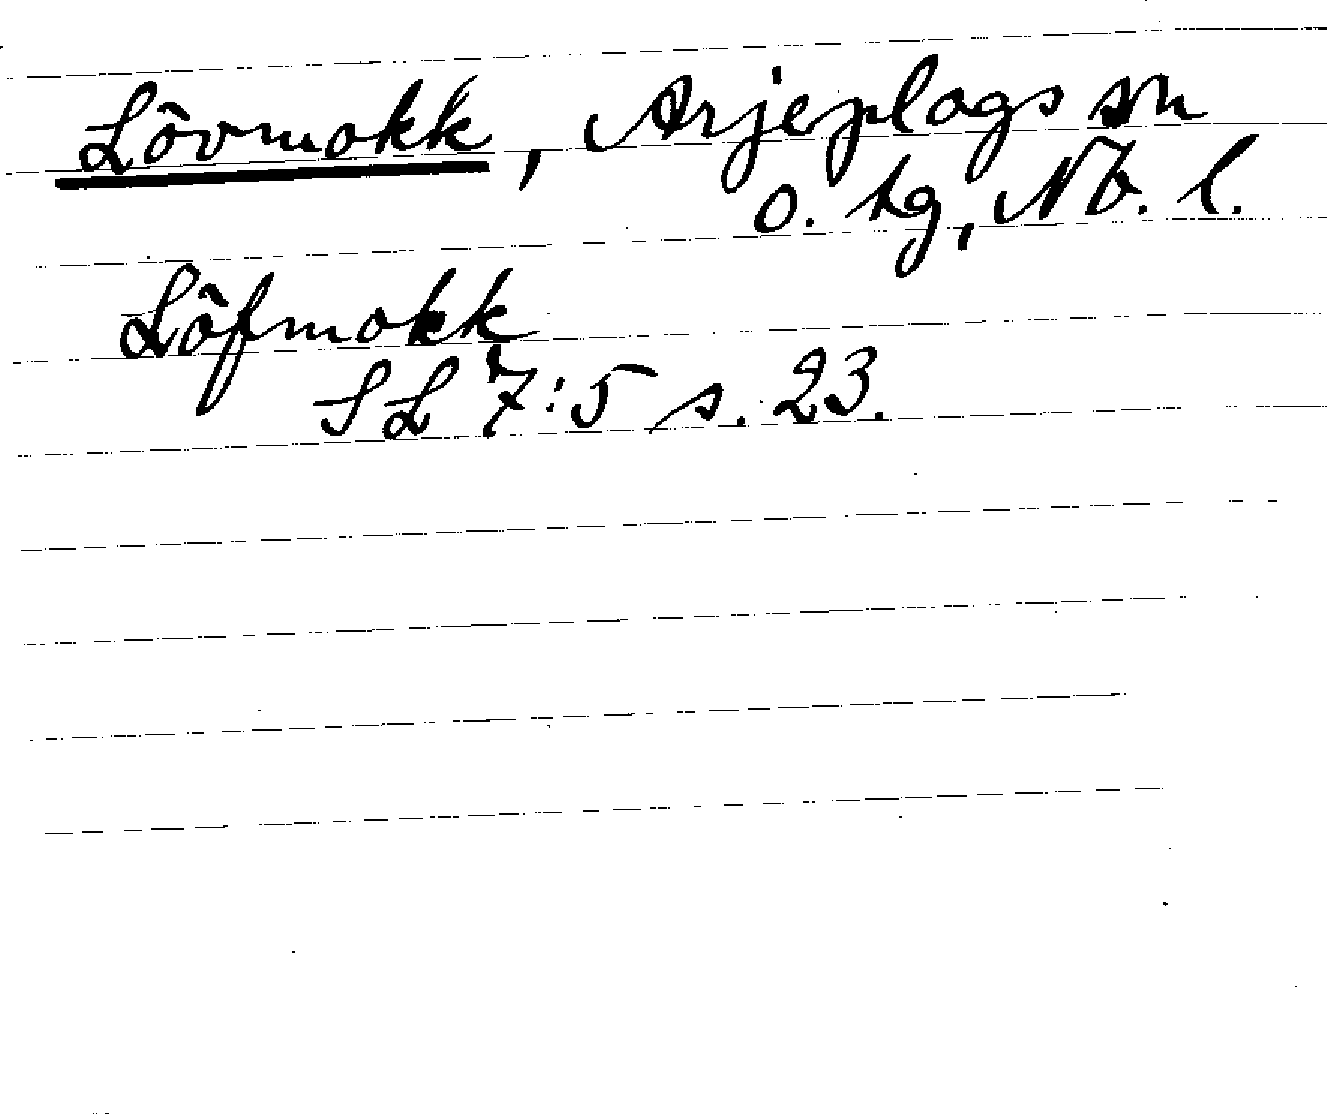 Lövmokk, Arjeplogs sn
o. tg, Nb. l.
Löfmokk
SL 7:5 s. 23.